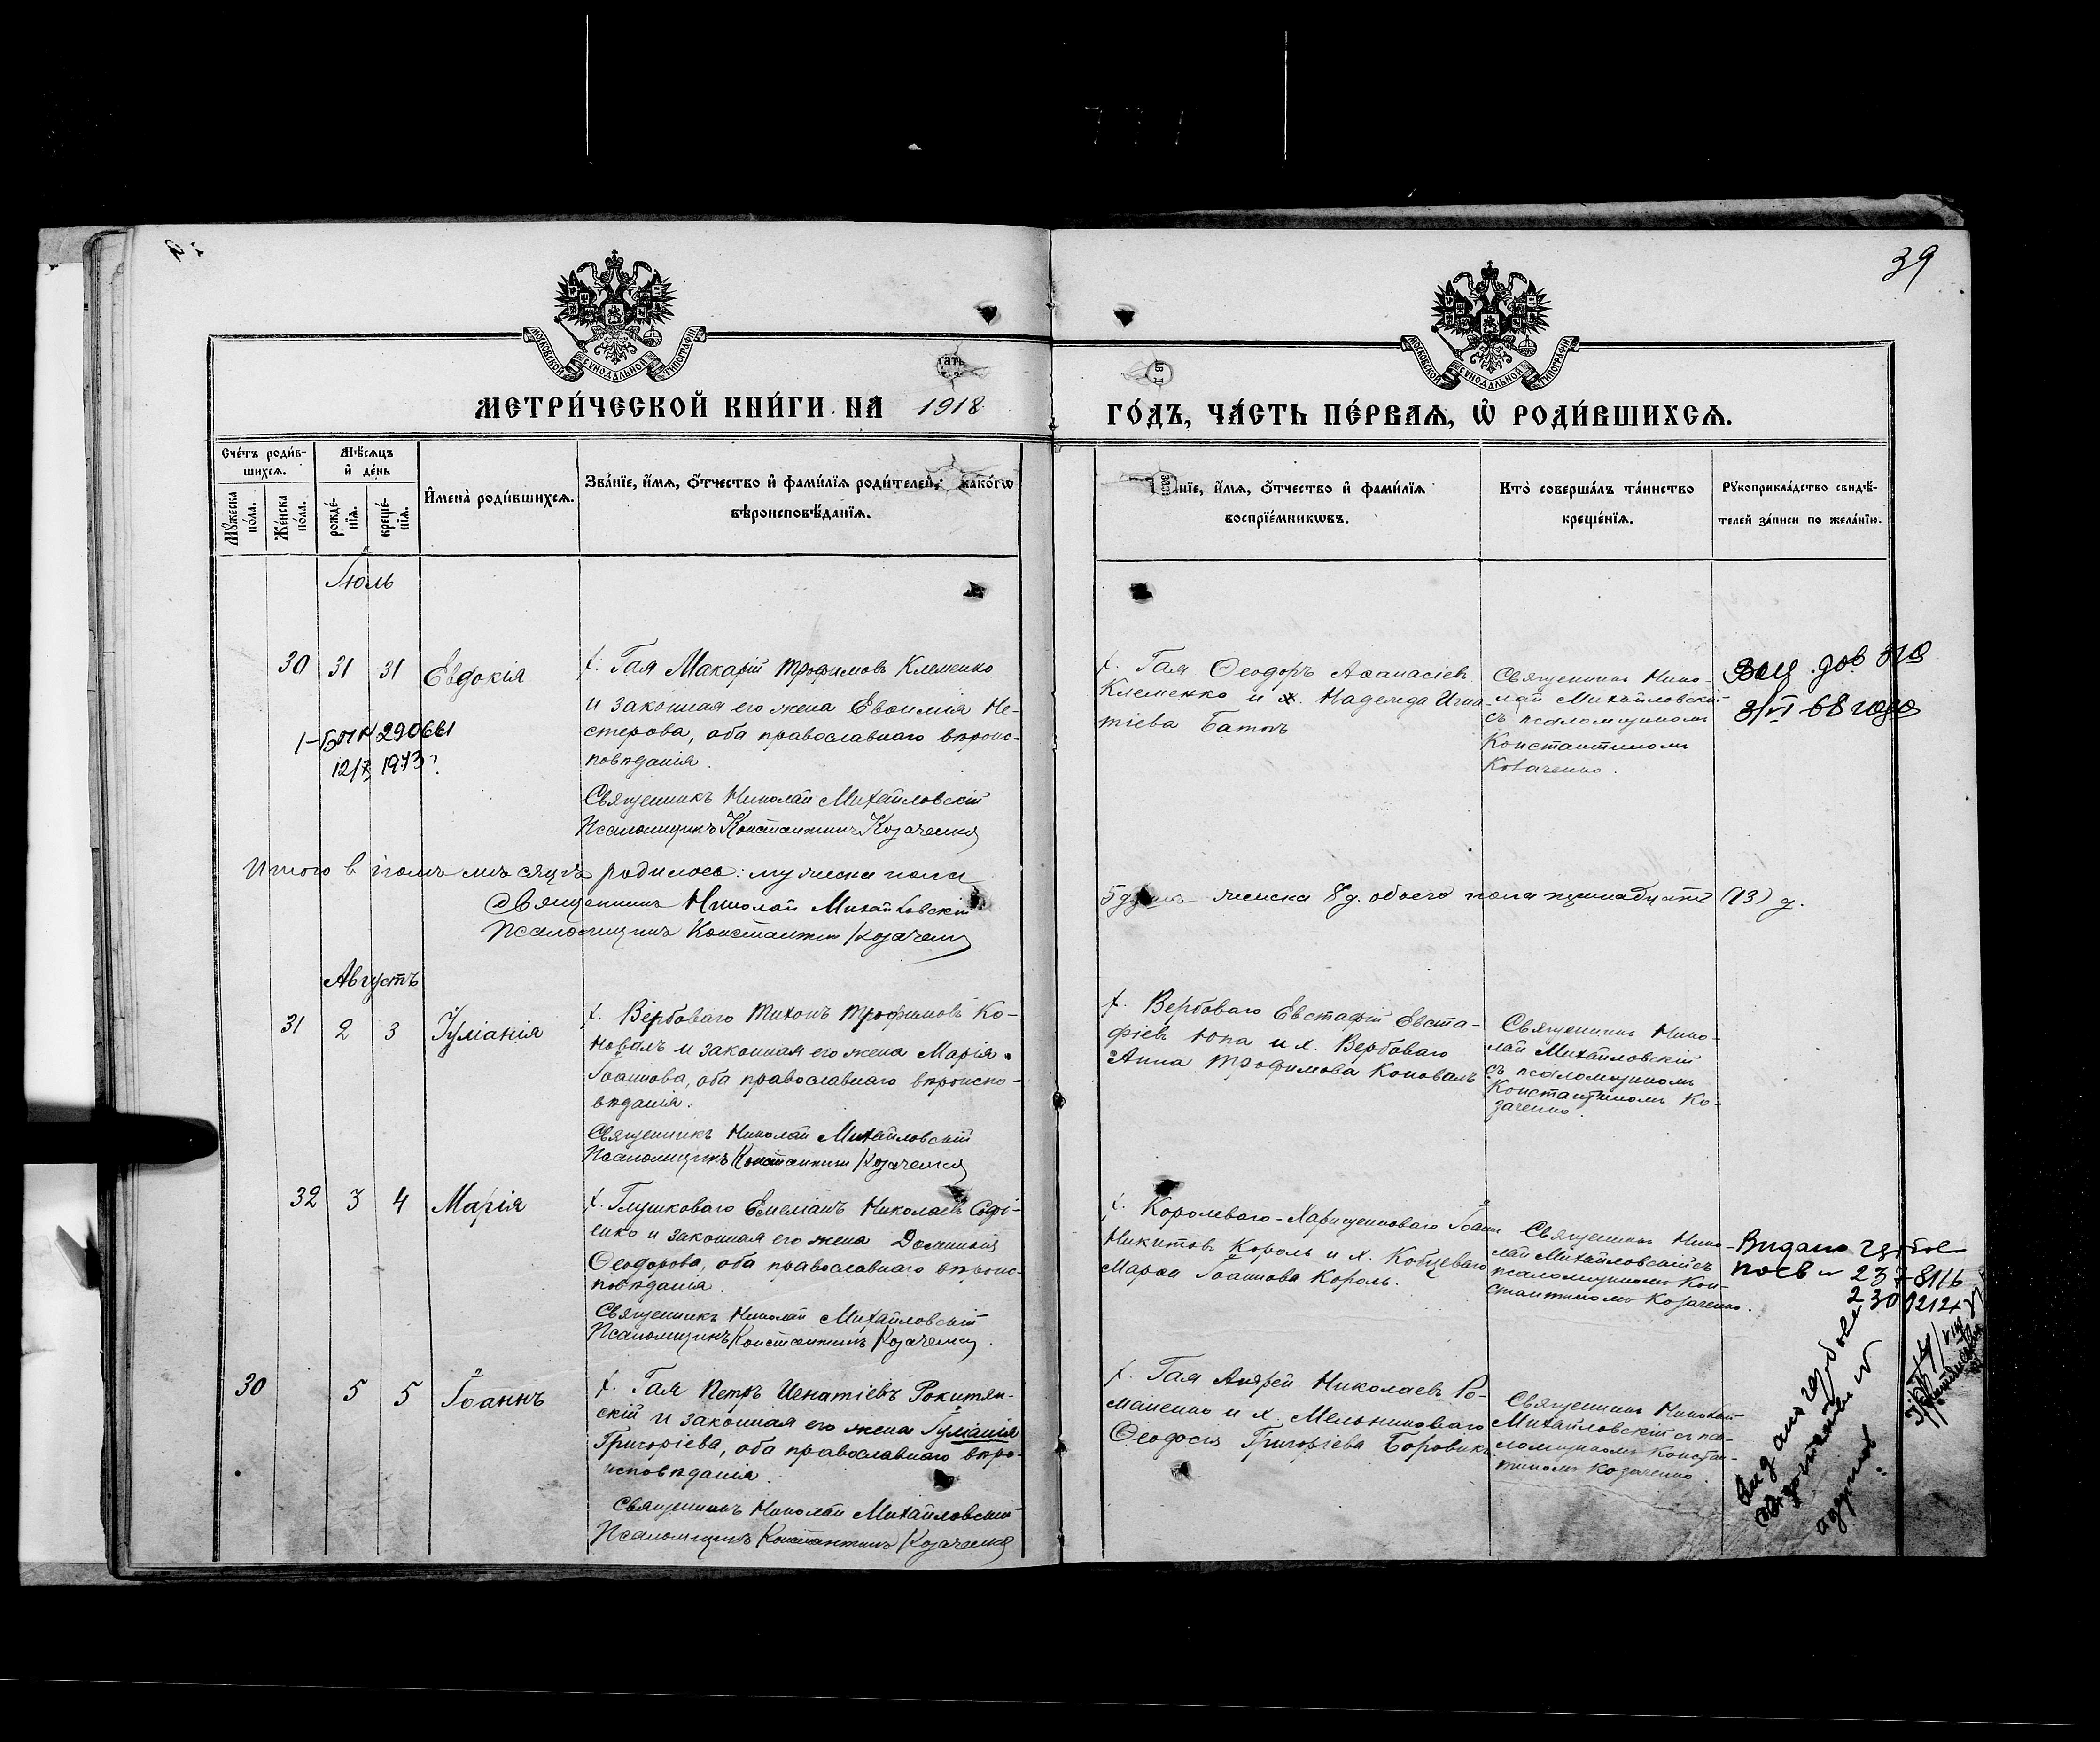 39
МОСКОВСКОЙ СУНОДАЛЬНОЙ ТИПОГРАФІИ
МОСКОВСКОЙ СУНОДАЛЬНОЙ ТИПОГРАФІИ
МЕТРИ́ЧЕСКОЙ КНИ́ГИ НА 1918
ГО́ДЪ, ЧА́СТЬ ПЕ́РВАѦ, Ѡ РОДИ́ВШИХСѦ.
Сче́тъ роди́в-
шихсѧ.
Мꙋжеска по́ла.
Же́нска по́ла.
Мѣ́сѧцъ
и҆ де́нь
рожде́-
нїѧ.
креще́-
нїѧ.
И҆мена̀ роди́вшихсѧ.
Зва́нїе, и҆́мѧ, ѻ҆́тчество и҆ фами́лїѧ роди́телей, како́гѡ
вѣроисповѣ́данїѧ.
нїе, и҆́мѧ, ѻ҆́тчество и҆ фами́лїѧ
воспрїе́мникѡвъ.
Кто̀ соверша́лъ та́инство
креще́нїѧ.
Рꙋкоприкла́дство свидѣ́-
телей за́писи по жела́нїю.
Іюль
30 31 31 Евдокія
х. Гая Макарій Трофимовъ Клеменко
и законная его жена Евѳимія Не-
стерова, оба православнаго вѣроис-
повѣданія.
Священникъ Николай Михайловскій
Псаломщикъ Константинъ Козаченко
290661
12/7 1973
х. Гая Ѳеодоръ Аѳанасіевъ
Клеменко и х. Надежда Игна-
тіева
Священникъ Нико-
лай Михайловскій
съ псаломщикомъ
Константиномъ
Козаченко.
3/VI 68 года
Итого в іюлѣ мѣсяцѣ родилось: мужеска пола
5 душъ женска 8 д. обоего пола тринадцать (13) д.
Священникъ Николай Михайловскій
Псаломщикъ Константин Козаченко
Августъ
31 2 3 Іуліанія
х. Вербоваго Тихонъ Трофимовъ Ко-
новалъ и законная его жена Марія
Іоаннова, оба православнаго вѣроиспо-
вѣданія.
Священникъ Николай Михайловскій
Псаломщикъ Константинъ Козаченко
х. Вербоваго Евстафій Евста-
фіевъ Юпа и х. Вербоваго
Анна Трофимова Коновалъ
Священникъ Нико-
лай Михайловскій
съ псаломщикомъ
Константиномъ Ко-
заченко.
32 3 4 Марія
х. Глушковаго Емеліанъ Николаевъ Софі-
енко и законная его жена Домникія
Ѳеодорова, оба православнаго вѣроис-
повѣданія.
Священникъ Николай Михайловскій
Псаломщикъ Константинъ Козаченко.
х. Королеваго-Харищенноваго Іоанн
Никитовъ Король и х.
Марѳа Іоаннова Король.
Священникъ Нико-
лай Михайловскій съ
псаломщикомъ Кон-
стантиномъ Козаченко.
30 5 5 Іоаннъ
х. Гая Петръ Игнатіевъ Рокитян-
скій и законная его жена Іуліанія
Григоріева, оба православнаго вѣро-
исповѣданія.
Священникъ Николай Михайловскій
Псаломщикъ Константинъ Козаченко
х. Гая Андрей Николаевъ Ро-
маненко и х. Мельниковаго
Ѳеодосія Григоріева Боровикъ.
Священникъ Николай
Михайловскій съ пса-
ломщикомъ Констан-
тиномъ Козаченко.